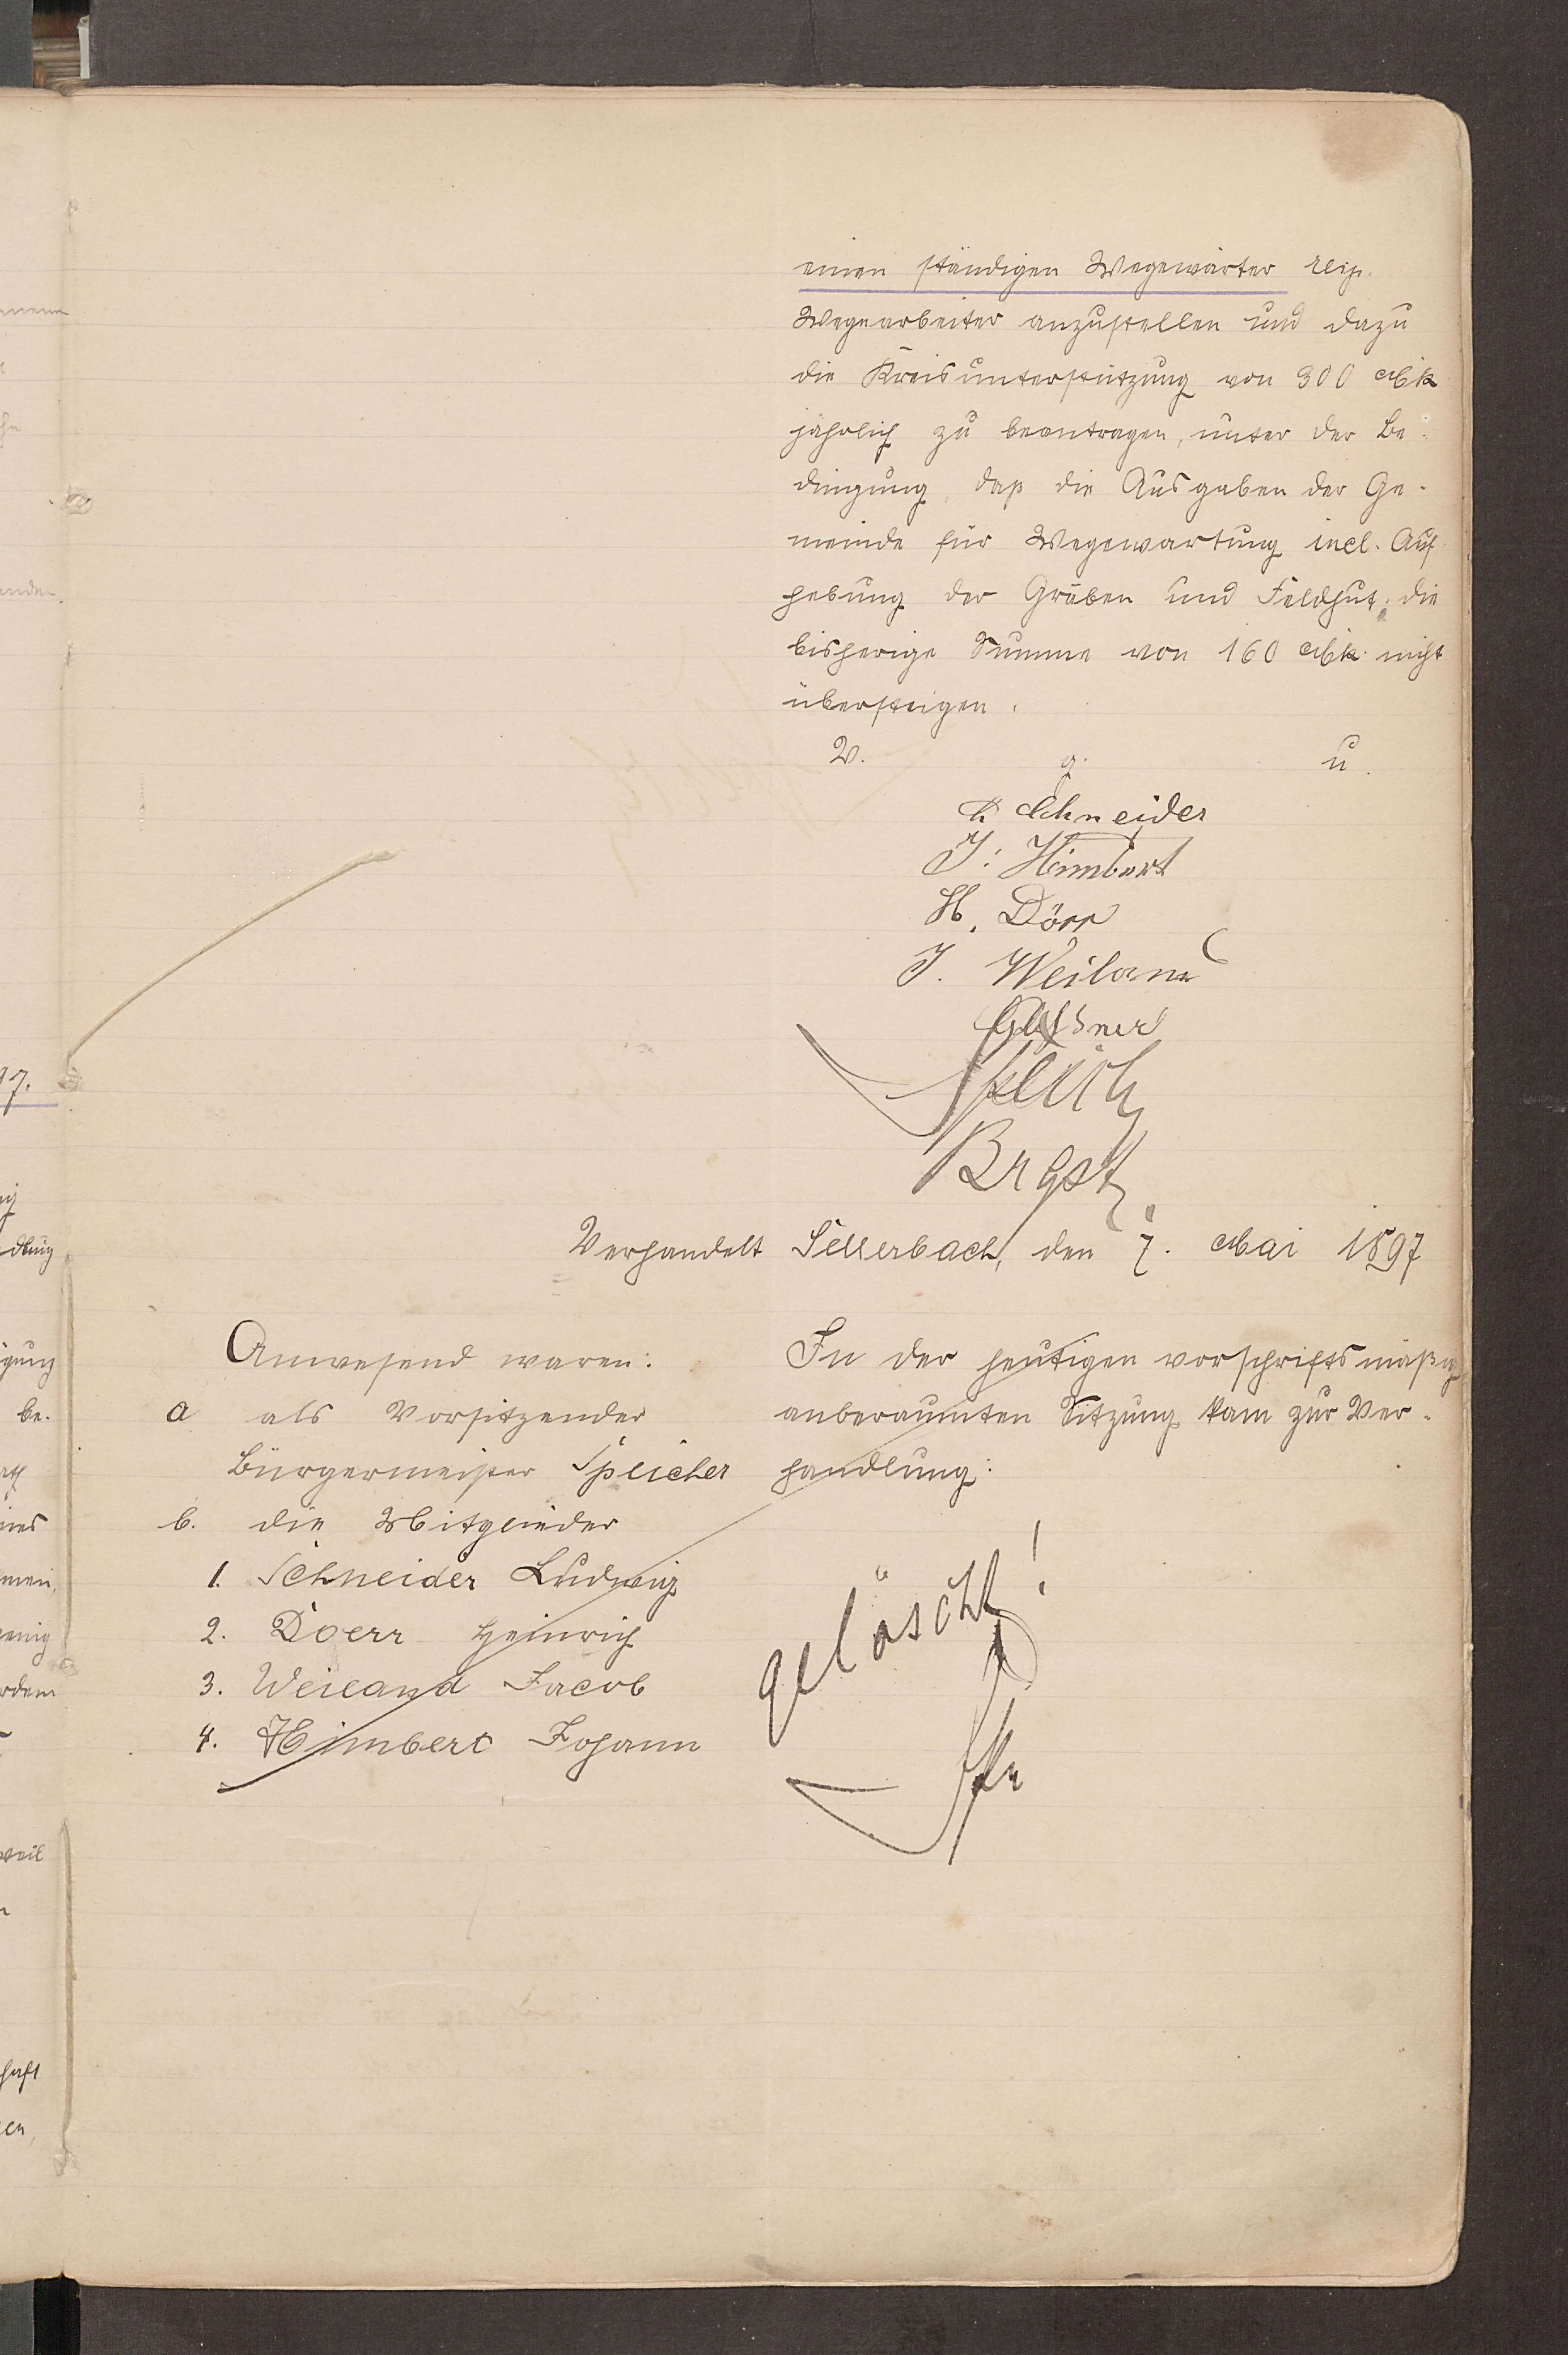 einen ständigen Wegewärter resp.
Wegearbeiter anzustellen und dazu
die Kreisunterstützung von 300 Mk
jährlich zu beantragen, unter der Be-
dingung, daß die Ausgaben der Ge-
meinde für Wegewartung incl. Auf-
hebung der Gräben und Feldhut, die
bisherige Summe von 160 Mk. nicht
übersteigen.
V. g. u.
L Schneider
J. Himbert
H. Dörr
J. Weiland
Speich
Brgstr
Verhandelt Sellerbach, den 7. Mai 1897
Anwesend waren:
a als Vorsitzender
Bürgermeister Speicher
b. die Mitglieder
1. Schneider Ludwig
2. Doerr Heinrich
3. Weiland Jacob
4. Himbert Johann
In der heutigen vorschriftsmäßig
anberaumten Sitzung kam zur Ver-
handlung:
gelöscht!